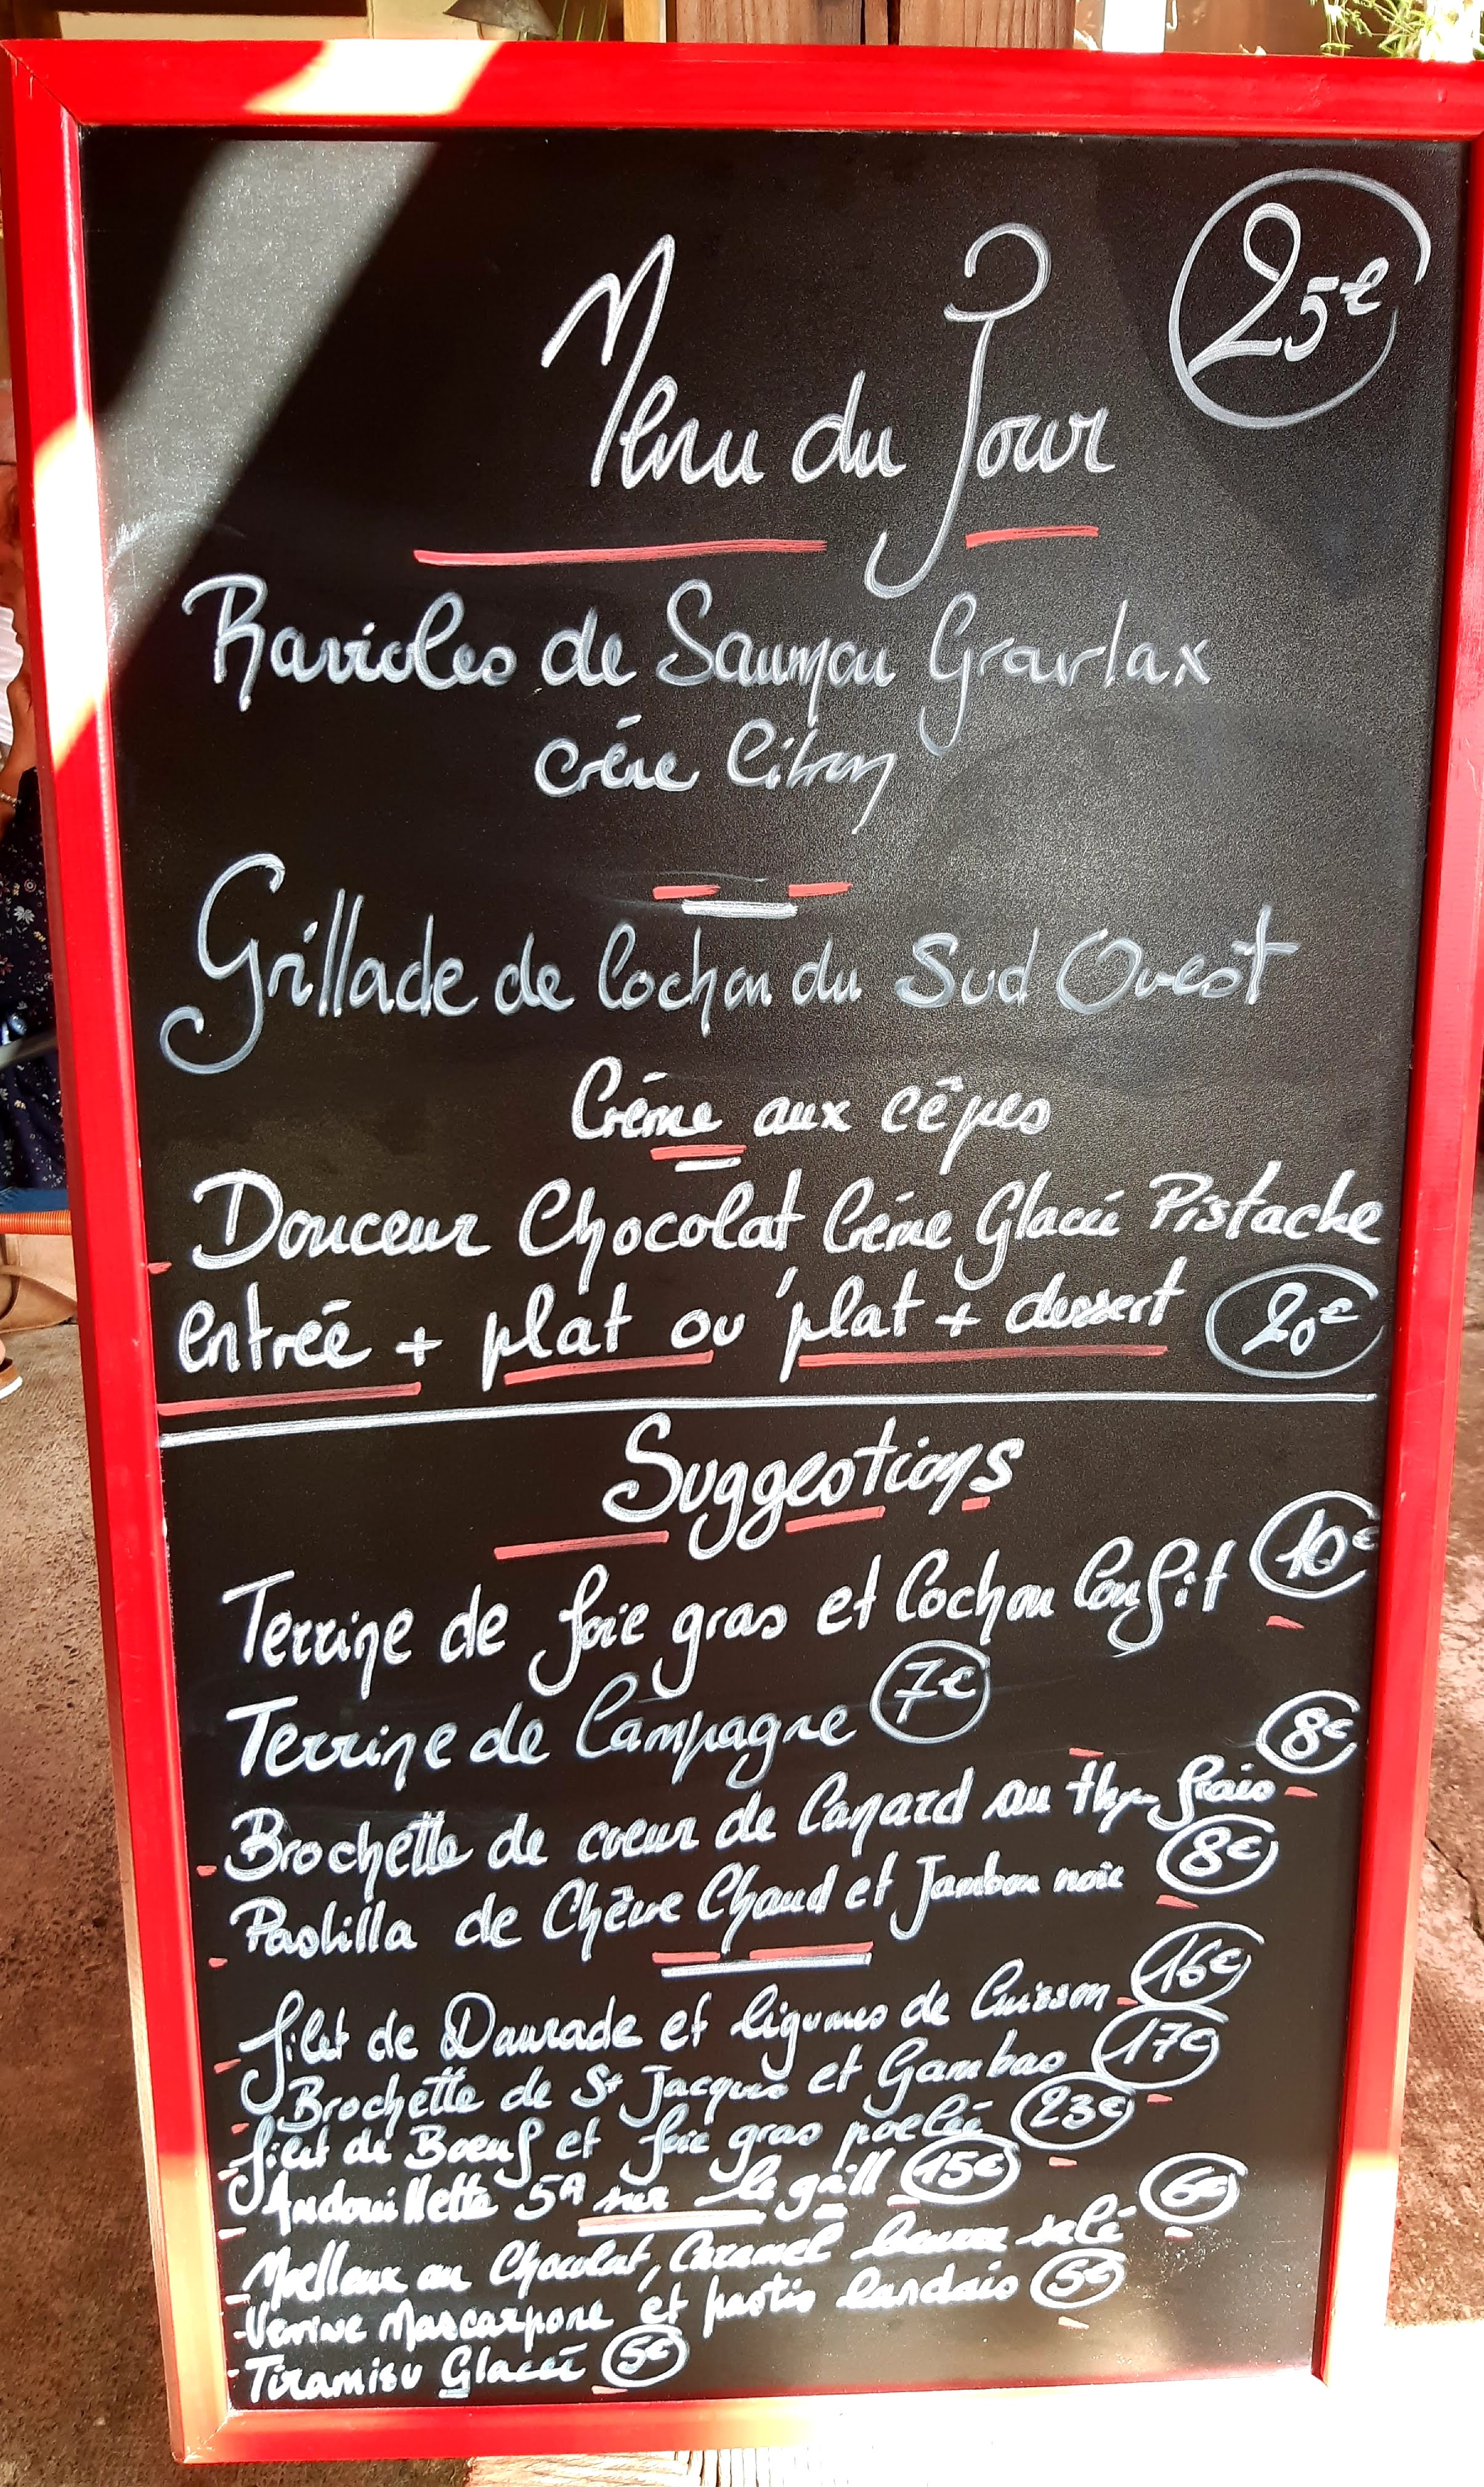 25€
Menu du Jour
Ravioles de Saumon Gravlax
crème Citron
Grillade de Cochon du Sud Ouest
Crème aux cêpes
Douceur Chocolat Crème Glacée Pistache
entrée + plat ou plat + dessert 20€
Suggestions
Terrine de foie gras et Cochon Confit 10€
Terrine de Campagne 7€
- Brochette de coeur de Canard au thym frais - 8€
- Pastilla de Chèvre Chaud et Jambon noir 8€
- filet de Daurade et légumes de Cuisson 16€
- Brochette de St Jacques et Gambas 17€
- filet de Boeuf et foie gras poêlé 23€
- Andouillette 5A sur le grill 15€
- Moelleux au Chocolat, Caramel beurre salé 6€
- Verrine Mascarpone et pastis landais 5€
- Tiramisu Glacé 5€